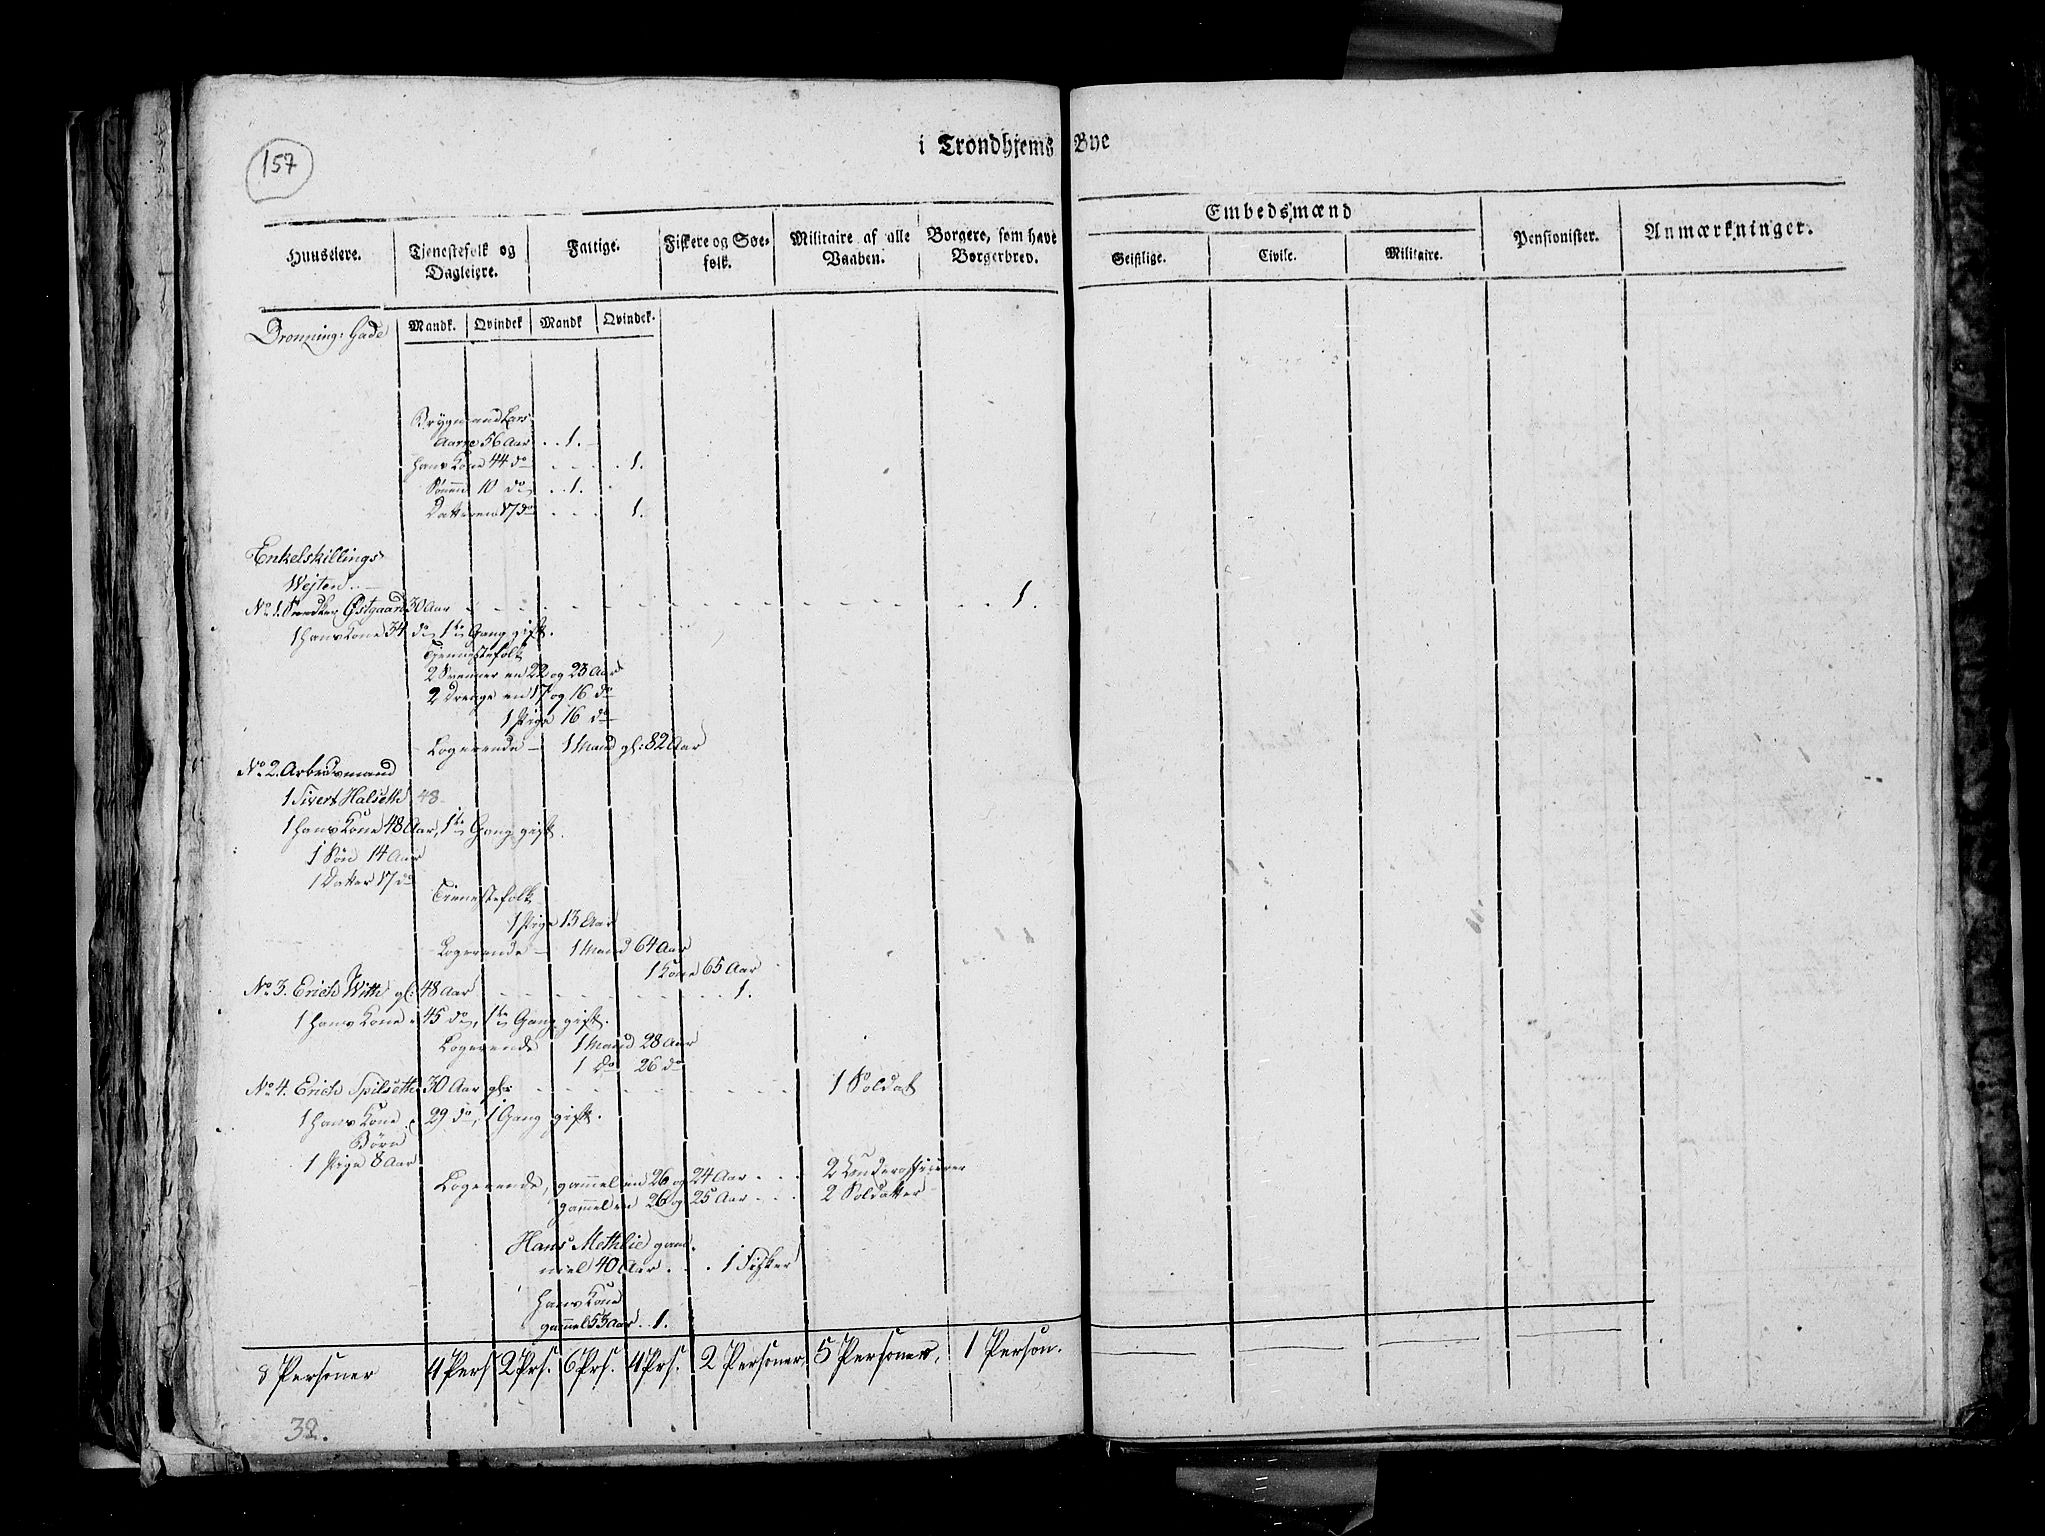 157
i Trondhjems Bye
Embedsmænd
Huuseiere. Tjenestefolk og Dagleiere. Fattige. Fiskere og Søefolk. Militaire af alle Vaaben. Borgere, som have Borgerbrev. Geistlige. Civile. Militaire. Pensionister. Anmærkninger.
Mandk. Qvindek Mandk Qvindek.
Dronning: Gade
Brygmand Lars
Aarre 56 Aar . . 1.
Hans Kone 44 do . . . . 1.
Sønnen 10 do . . 1.
Datteren 17 do . . . 1.
Enkelskillings
Wejten.
No 1. Snedker Østgaard 30 Aar . . . 1.
1 Hans Kone 34 do, 1te Gang gift.
Tjennestefolk
2 Svenner en 22 og 23 Aar
2 Drenge en 17 og 16 do
1 Pige 16 do
Logerende — 1 Mand gl: 82 Aar
No 2. Arbedsmand
1 Sivert Halseth 48
1 Hans Kone 48 Aar, 1te Gang gift.
1 Søn 14 Aar
1 Datter 17 do
Tienestefolk
1 Pige 13 Aar
Logerende — 1 Mand 64 Aar
1 Kone 65 Aar
No 3. Erich With gl: 48 Aar . . . 1.
1 Hans Kone . 45 do, 1te Gang gift.
Logerende 1 Mand 28 Aar
1 do 26 do
No 4. Erich Spilseth 30 Aar gl: . . . 1 Soldat
1 Hans Kone . 29 do, 1 Gang gift.
Børn
1 Pige 8 Aar
Logerende, gammel en 26 og 24 Aar . . . 2 Underofficerer
gammel en 26 og 25 Aar . . . 2 Soldatter
Hans Methlie gam-
mel 40 Aar . . . 1 Fisker
Hans Kone
gammel 53 Aar . . 1.
8 Personer 4 Pers 2 Prs. 6 Prs. 4 Prs. 2 Personer, 5 Personer, 1 Person.
32.